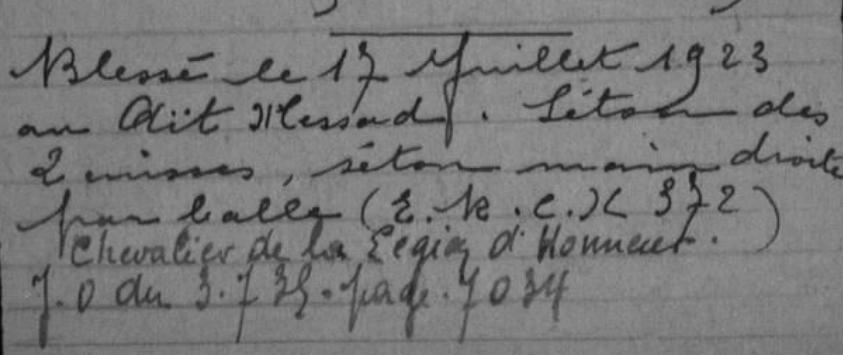 Blessé le 17 Juillet 1923
au Aït Messad. Séton des
2 cuisses, séton main droite
par balle (E.K.C. 372)
Chevalier de la Légion d'Honneur.
J.O du 3.7 35. page. 7034